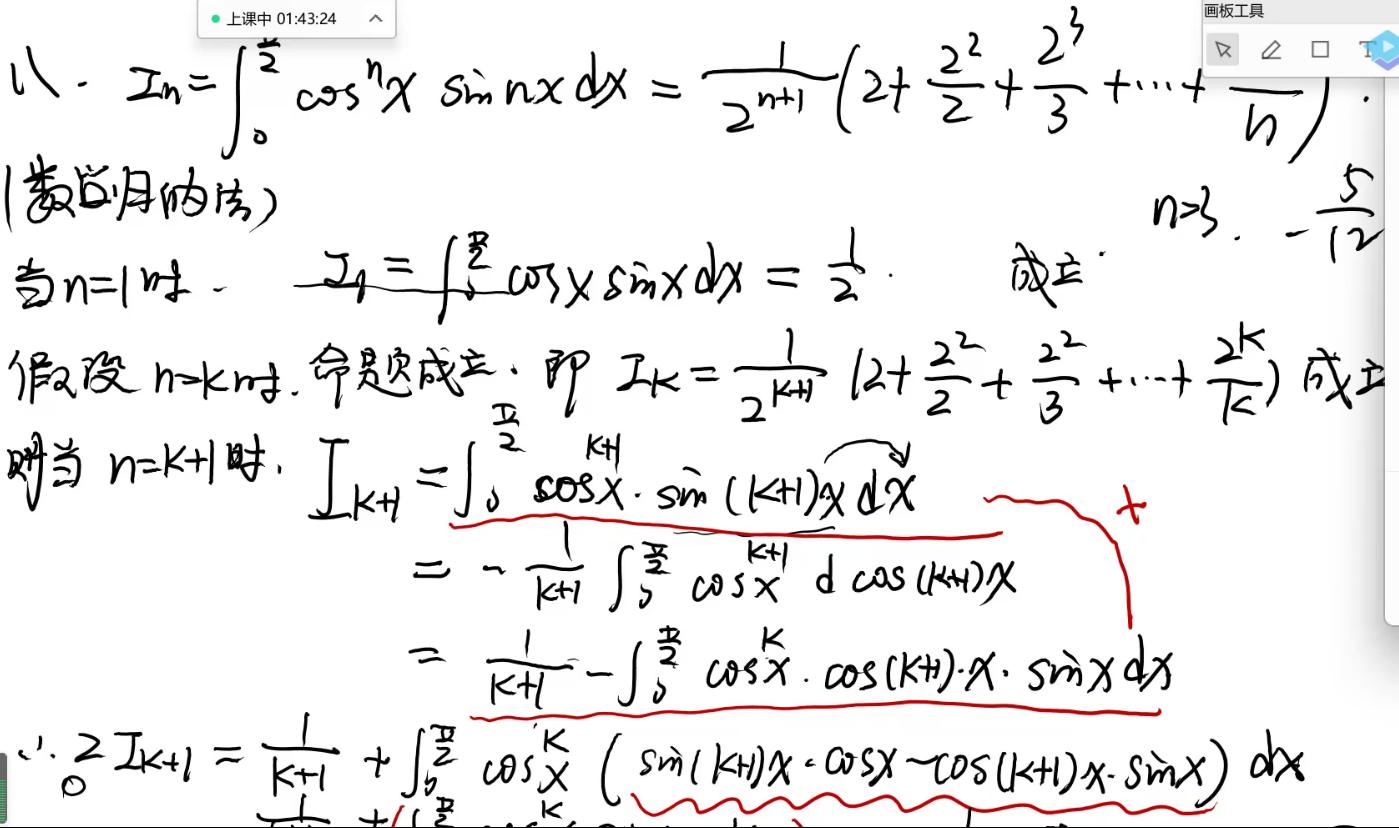 上课中 01:43:24
画板工具
八. Iₙ = ∫₀^(π/2) cosⁿx sin nx dx = 1/2^(n+1) (2 + 2²/2 + 2³/3 + ⋯ + /n).
(数学归纳法)
n=3. -5/12
当n=1时. I₁ = ∫₀^(π/2) cosx sinx dx = 1/2. 成立.
假设 n=k时. 命题成立. 即 I_K = 1/2^(K+1) (2 + 2²/2 + 2²/3 + ⋯ + 2^K/K) 成立
则当 n=K+1时. I_(K+1) = ∫₀^(π/2) cos^(K+1)x · sin(K+1)x dx
= -1/(K+1) ∫₀^(π/2) cos^(K+1)x d cos(K+1)x
+
= 1/(K+1) - ∫₀^(π/2) cos^K x · cos(K+1)·x · sinx dx
∴ 2I_(K+1) = 1/(K+1) + ∫₀^(π/2) cos^K x (sin(K+1)x · cosx - cos(K+1)x · sinx) dx